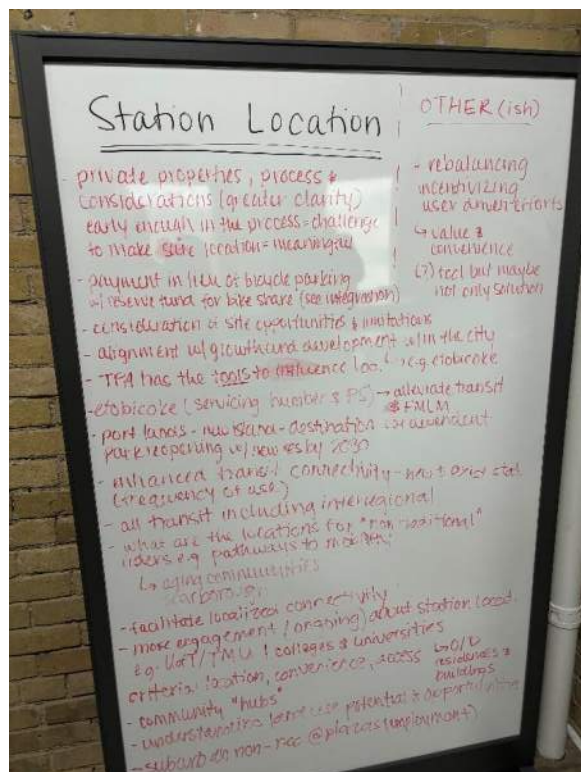 Station Location
- private properties, process &
considerations (greater clarity)
early enough in the process = challenge
to make site location = meaningful
- payment in lieu of bicycle parking
w/ reserve fund for bike share (see integration)
- consideration of site opportunities & limitations
- alignment w/ growth and development w/in the city
- TPA has the tools to influence loc.
e.g. etobicoke
- etobicoke (servicing number & PS) → alleviate transit
& FMLM
- port lands - new island - destination
park reopening w/ new res by 2030
- enhanced transit connectivity - next
(frequency of use)
- all transit including interregional
- what are the locations for "non traditional"
riders e.g. pathways to
↳ aging communities
scarborough
- facilitate localized connectivity
- more engagement (ongoing) about station locat.
e.g. UofT/TMU / colleges & universities
criteria: location, convenience, access
↳ O/D
residences &
buildings
- community "hubs"
- understanding land use potential & opportunities
- suburban non-res @ plazas (employment)
OTHER (ish)
- rebalancing
incentivizing
user driven efforts
↳ value &
convenience
(?) tool but maybe
not only solution